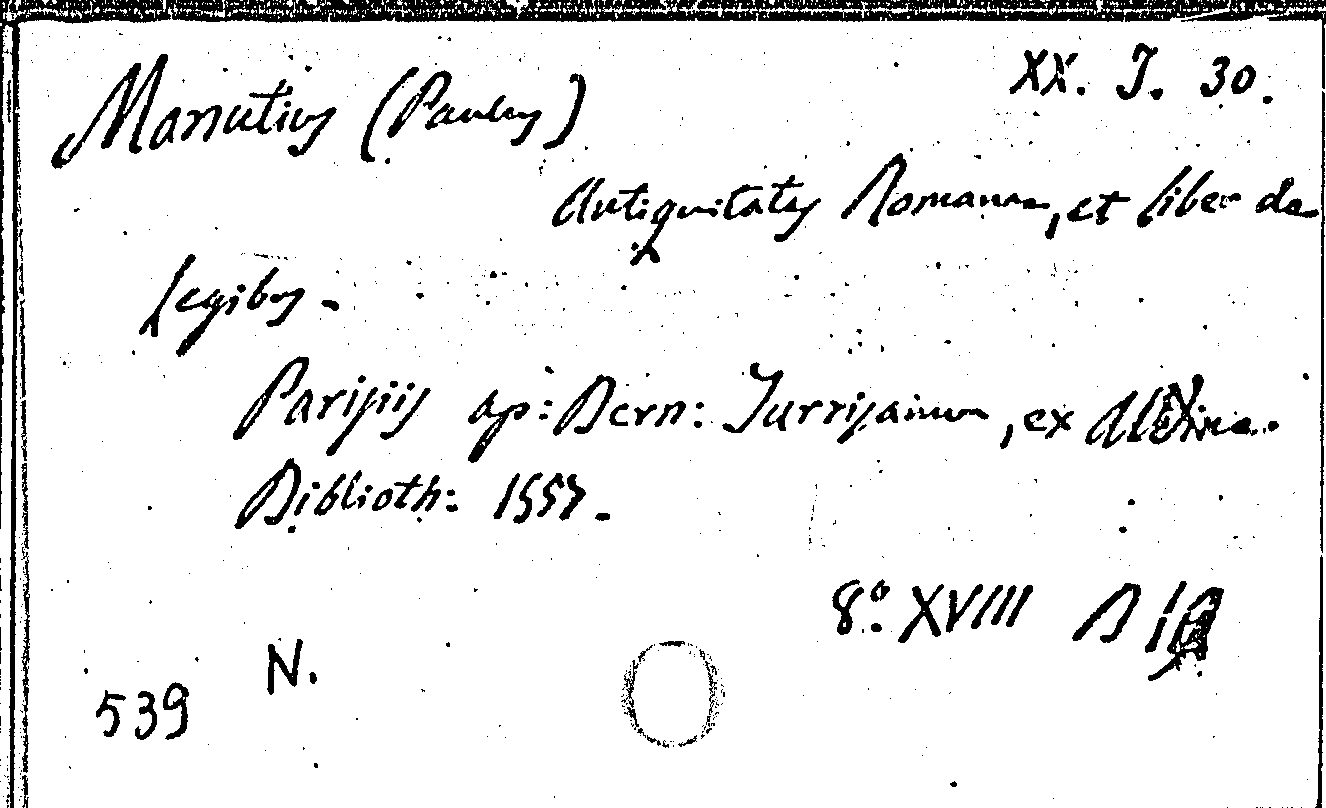 XX. J. 30.
Manutius (Paulus)
Antiquitates Romanae, et liber de
legibus -
Parisiis ap: Bern: Turrisanum, ex Aldina
Biblioth: 1557.
8° XVIII B
N.
539